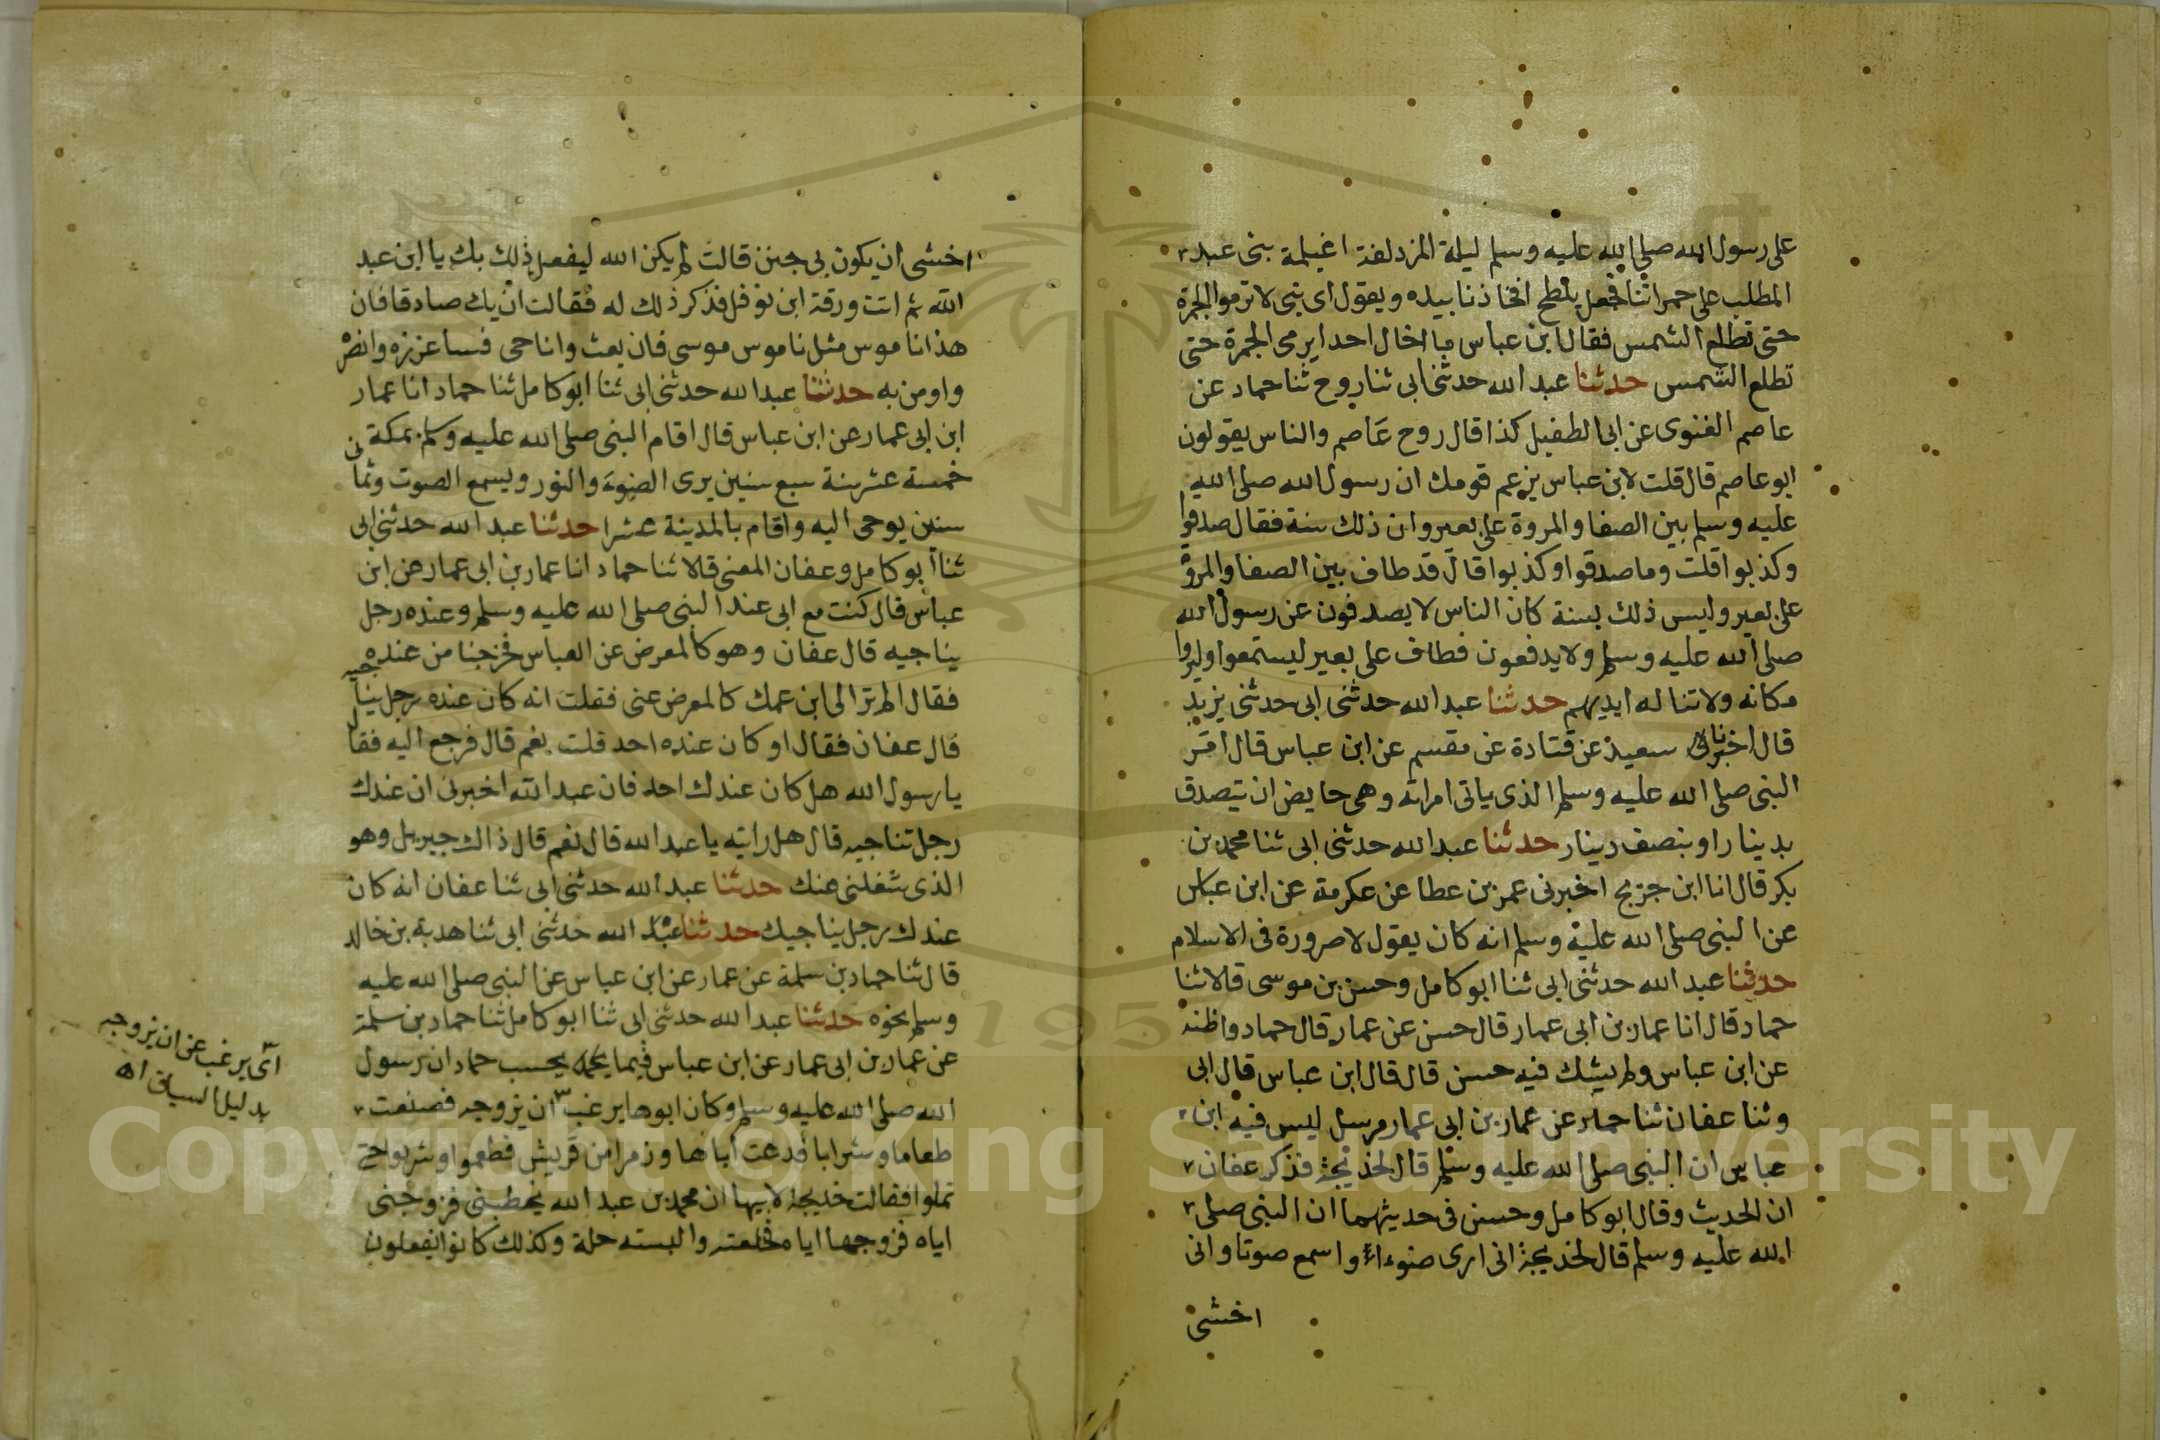 على رسول الله صلى الله عليه وسلم ليلة المزدلفة اغيلمة بنى عبد
المطلب على حمراتنا فجعل يلطح افخاذنا بيده ويقول اى بنى لا ترموا الجمرة
حتى تطلع الشمس فقال ابن عباس ما اخال احدا يرمى الجمرة حتى
تطلع الشمس حدثنا عبد الله حدثنى ابى ثنا روح ثنا حماد عن
عاصم الغنوى عن ابى الطفيل كذا قال روح عاصم والناس يقولون
ابو عاصم قال قلت لابن عباس يزعم قومك ان رسول الله صلى الله
عليه وسلم بين الصفا والمروة على بعير وان ذلك سنة فقال صدقوا
وكذبوا قلت وما صدقوا وكذبوا قال قد طاف بين الصفا والمروة
على بعير وليس ذلك بسنة كان الناس لا يصدفون عن رسول الله
صلى الله عليه وسلم ولا يدفعون فطاف على بعير ليستمعوا وليروا
مكانه ولا تناله ايديهم حدثنا عبد الله حدثنى ابى حدثنى يزيد
قال اخبرنا سعيد عن قتادة عن مقسم عن ابن عباس قال امر
النبى صلى الله عليه وسلم الذى ياتى امراته وهى حايض ان يتصدق
بدينار او بنصف دينار حدثنا عبد الله حدثنى ابى ثنا محمد بن
بكر قال انا ابن جريج اخبرنى عمر بن عطا عن عكرمة عن ابن عباس
عن النبى صلى الله عليه وسلم انه كان يقول لا صرورة فى الاسلام
حدثنا عبد الله حدثنى ابى ثنا ابو كامل وحسن بن موسى قالا ثنا
حماد قال انا عمار بن ابى عمار قال حسن عن عمار قال حماد واظنه
عن ابن عباس ولم يشك فيه حسن قال قال ابن عباس قال ابى
وثنا عفان ثنا حماد عن عمار بن ابى عمار مرسل ليس فيه ابن
عباس ان النبى صلى الله عليه وسلم قال لخديجة فذكر عفان
ان الحديث وقال ابو كامل وحسن فى حديثهما ان النبى صلى
الله عليه وسلم قال لخديجة انى ارى ضوءا واسمع صوتا وانى
اخشى
اخشى ان يكون بى جنن قالت لم يكن الله ليفعل ذلك بك يا ابن عبد
الله ثم اتت ورقة ابن نوفل فذكر ذلك له فقالت ان يك صادقا فان
هذا ناموس مثل ناموس موسى فان بعث وانا حى فساعززه وانصره
واومن به حدثنا عبد الله حدثنى ابى ثنا ابو كامل ثنا حماد انا عمار
ابن ابى عمار عن ابن عباس قال اقام النبى صلى الله عليه وسلم بمكة
خمسة عشر سنة سبع سنين يرى الضوء والنور ويسمع الصوت وثمانى
سنين يوحى اليه واقام بالمدينة عشرا حدثنا عبد الله حدثنى ابى
ثنا ابو كامل وعفان المعنى قالا ثنا حماد انا عمار بن ابى عمار عن ابن
عباس قال كنت مع ابى عند النبى صلى الله عليه وسلم وعنده رجل
يناجيه قال عفان وهو كالمعرض عن العباس فخرجنا من عنده
فقال الم تر الى ابن عمك كالمعرض عنى فقلت انه كان عنده رجل يناجيه
قال عفان فقال او كان عنده احد قلت نعم قال فرجع اليه فقال
يا رسول الله هل كان عندك احد فان عبد الله اخبرنى ان عندك
رجل تناجيه قال هل رايته يا عبد الله قال نعم قال ذاك جبريل وهو
الذى شغلنى عنك حدثنا عبد الله حدثنى ابى ثنا عفان انه كان
عندك رجل يناجيك حدثنا عبد الله حدثنى ابى ثنا هدبة بن خالد
قال ثنا حماد بن سلمة عن عمار عن ابن عباس عن النبى صلى الله عليه
وسلم نحوه حدثنا عبد الله حدثنى ابى ثنا ابو كامل ثنا حماد بن سلمة
عن عمار بن ابى عمار عن ابن عباس فيما يحسب حماد ان رسول
الله صلى الله عليه وسلم وكان ابوها يرغب ان يزوجه فصنعت
طعاما وشرابا فدعت اباها وزمرا من قريش فطعموا وشربوا حتى
ثملوا فقالت خديجة لابيها ان محمد بن عبد الله يخطبنى فزوجنى
اياه فزوجها اياه فخلعته والبسته حلة وكذلك كانوا يفعلون
اى يرغب عن ان يزوجه
بدليل السياق اه
Copyright © King Saud University
1957